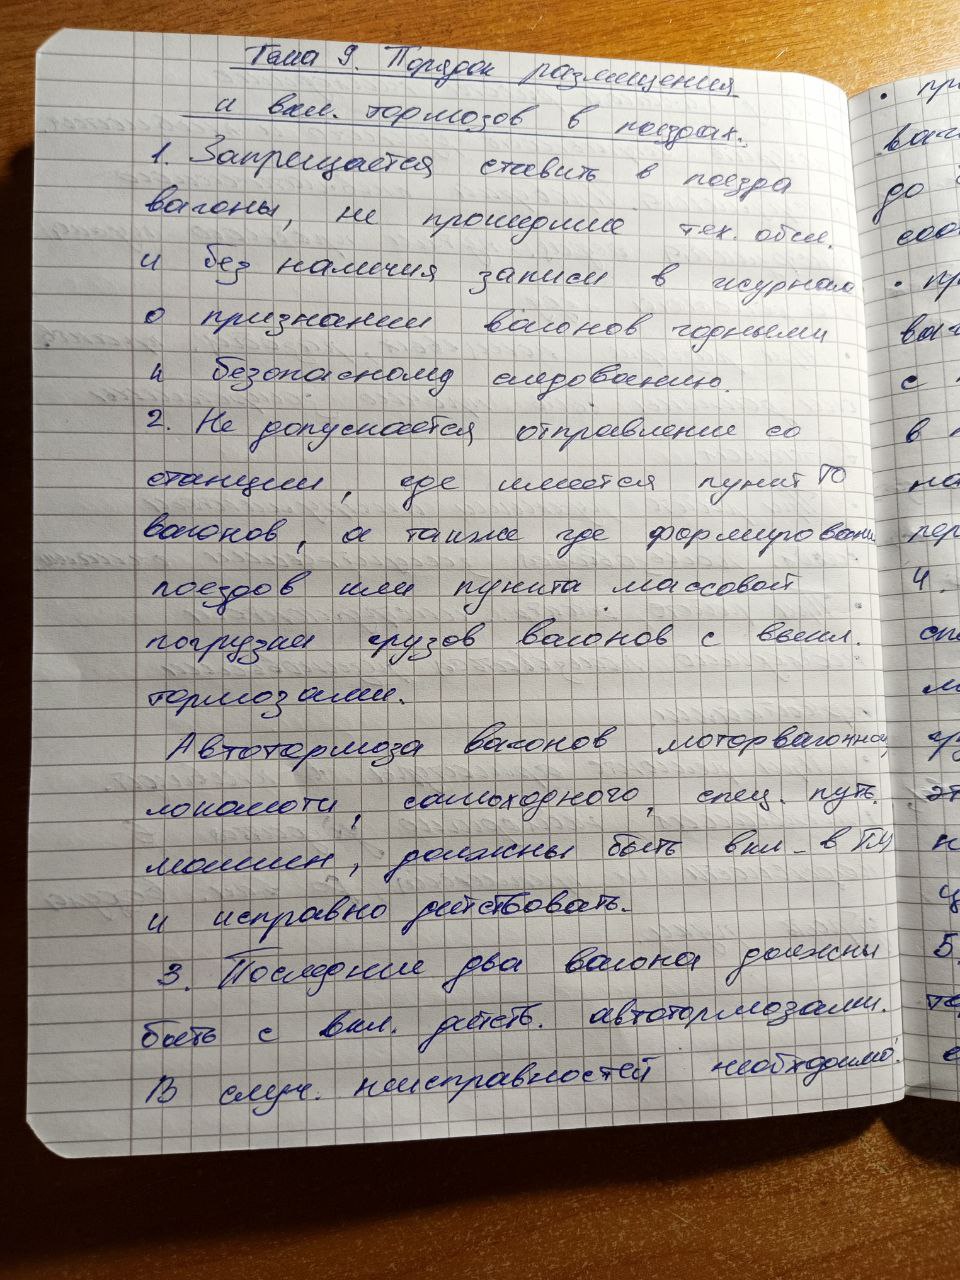 Тема 9. Порядок размещения
и вкл. тормозов в поездах.
1. Запрещается ставить в поезда
вагоны, не прошедшие тех. обсл.
и без наличия записи в журнале
о признании вагонов годными
к безопасному следованию.
2. Не допускается отправление со
станции, где имеется пункт ТО
вагонов, а также где формирован
поездов или пункта массовой
погрузки грузов вагонов с выкл.
тормозами.
Автотормоза вагонов моторвагонной,
локомоти, самоходного, спец. путь.
машин, должны быть вкл. в ПЧ
и исправно действовать.
3. Последние два вагона должны
быть с вкл. действ. автотормозами.
В случ. неисправностей необходимо:
• пр
ваг
до
соо
• пр
ваг
с
в
на
пер
4.
спе
м
гр
эт
н
ц
5.
те
е